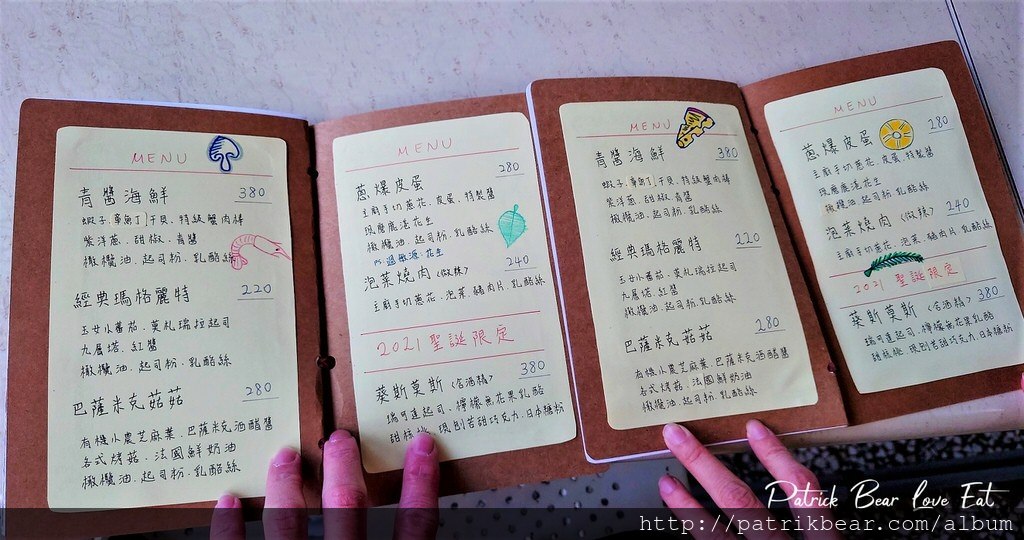 MENU
青醬海鮮 380
蝦子.章魚丁.干貝.特級蟹肉棒
紫洋蔥.甜椒.青醬
橄欖油.起司粉.乳酪絲
經典瑪格麗特 220
玉女小蕃茄.莫札瑞拉起司
九層塔.紅醬
橄欖油.起司粉.乳酪絲
巴薩米克菇菇 280
有機小農芝麻葉.巴薩米克酒醋醬
各式烤菇.法國鮮奶油
橄欖油.起司粉.乳酪絲
MENU
蔥爆皮蛋 280
主廚手切蔥花.皮蛋.特製醬
玫瑰鹽漬花生
橄欖油.起司粉.乳酪絲
過敏源:花生
泡菜燒肉(微辣) 240
主廚手切蔥花.泡菜.豬肉片.乳酪絲
2021聖誕限定
葵斯莫斯(含酒精) 380
瑞可達起司.檸檬無花果乳酪
現刨苦甜巧克力.日本糖粉
MENU
青醬海鮮 380
蝦子.章魚丁.干貝.特級蟹肉棒
紫洋蔥.甜椒.青醬
橄欖油.起司粉.乳酪絲
經典瑪格麗特 220
玉女小蕃茄.莫札瑞拉起司
九層塔.紅醬
橄欖油.起司粉.乳酪絲
巴薩米克菇菇 280
有機小農芝麻葉.巴薩米克酒醋醬
各式烤菇.法國鮮奶油
橄欖油.起司粉.乳酪絲
MENU
蔥爆皮蛋 280
主廚手切蔥花.皮蛋.特製醬
玫瑰鹽漬花生
橄欖油.起司粉.乳酪絲
泡菜燒肉(微辣) 240
主廚手切蔥花.泡菜.豬肉片.乳酪絲
2021聖誕限定
葵斯莫斯(含酒精) 380
瑞可達起司.檸檬無花果乳酪
現刨苦甜巧克力.日本糖粉
Patrick Bear Love Eat
http://patrikbear.com/album